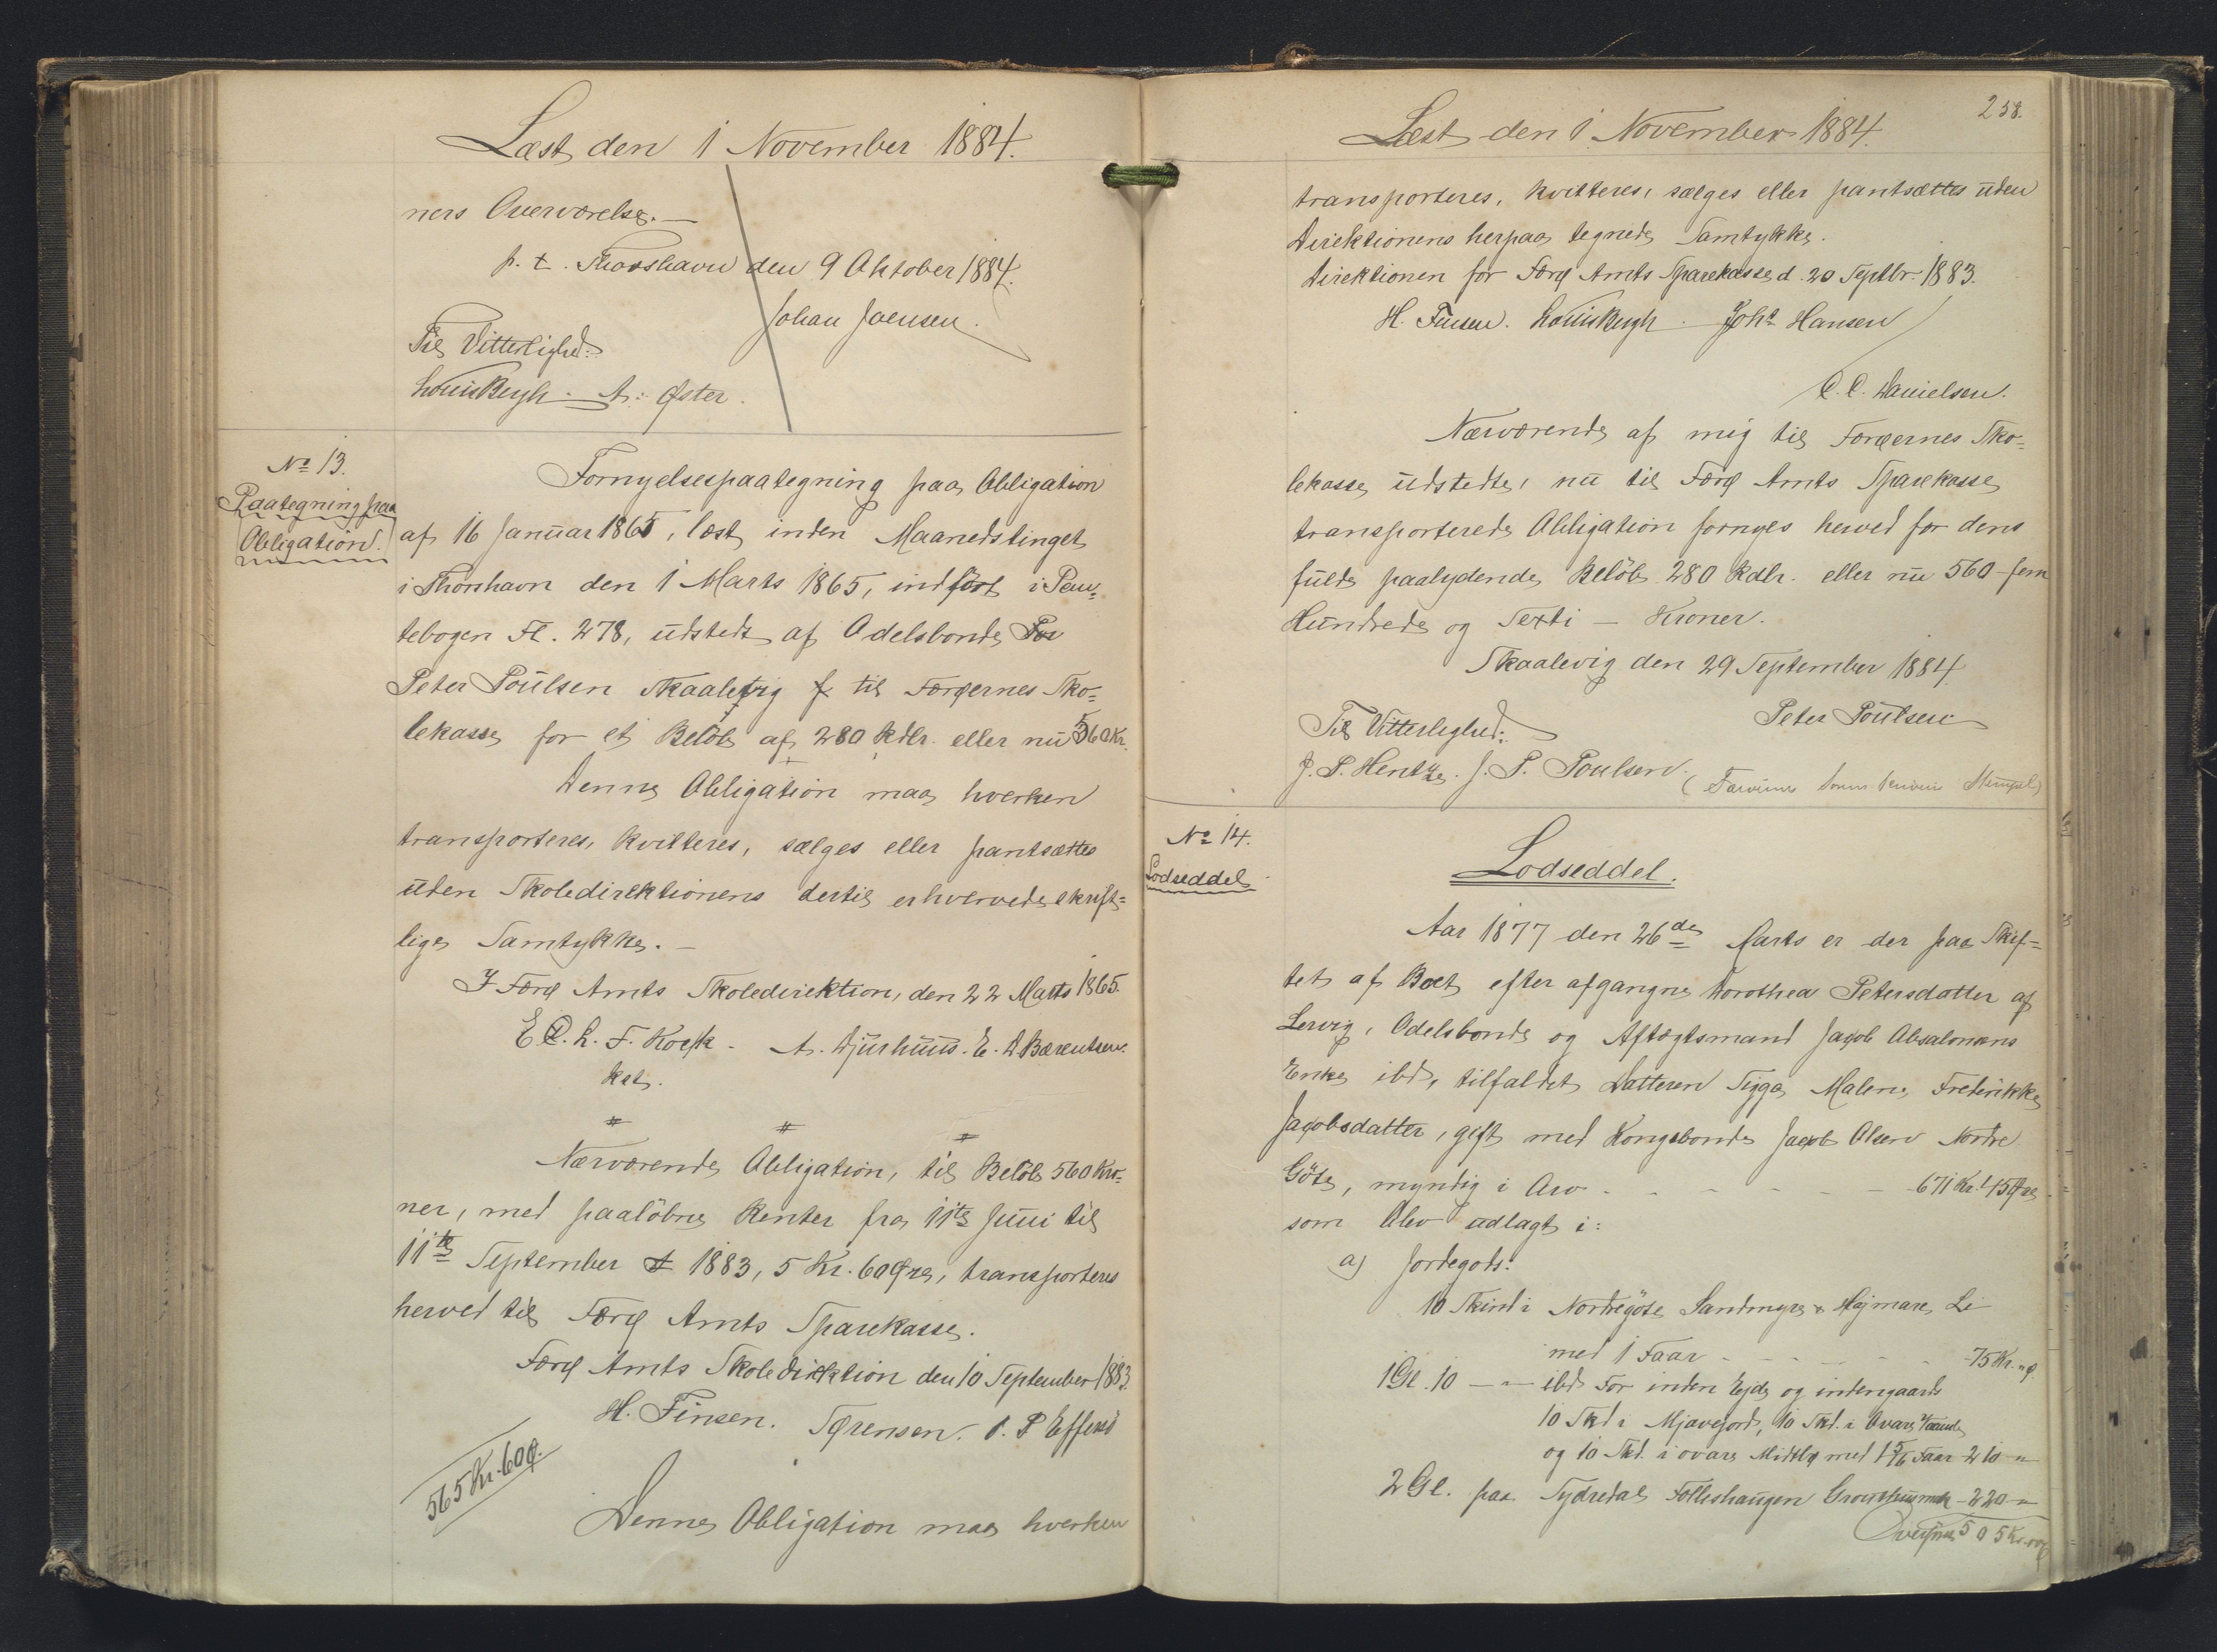 Læst den 1 November 1884.
ners Overværelse.—
p. t. Thorshavn den 9 Oktober 1884.
Johan Joensen.
Til Vitterlighed:
Louis Bergh. A. Øster.
No 13.
Paategning paa
Obligation.
Fornyelsespaategning paa Obligation
af 16 Januar 1865, læst inden Maanedstinget
i Thorshavn den 1 Marts 1865, indført i Pan-
tebogen Fl. 278, udstedt af Odelsbonde Po
Peter Poulsen Skaalevig f til Færøernes Sko-
lekasse for et Beløb af 280 Rdlr. eller nu 560 Kr.
Denne Obligation maa hverken
transporteres, kvitteres, sælges eller pantsættes
uden Skoledirektionens dertil erhvervede skrift-
lige Samtykke.—
I Færø Amts Skoledirektion, den 22 Marts 1865.
C. L. F. Koefk. A. Djurhuus. E. D Bærentsen.
kst.
Nærværende Obligation, til Beløb 560 Kro-
ner, med paaløbne Renter fra 11te Juni til
11te September 1883, 5 Kr. 60 Øre, transporteres
herved til Færø Amts Sparekasse.
Færø Amts Skoledirektion den 10 September 1883.
H. Finsen. Sørensen. J. P Effersø
565 Kr. 60 Ø.
Denne Obligation maa hverken
258.
Læst den 1 November 1884.
transporteres, kvitteres, sælges eller pantsættes uden
Direktionens herpaa tegnede Samtykke.
Direktionen for Færø Amts Sparekasse d. 20 Septbr. 1883.
H. Finsen. Louis Bergh. Johs Hansen
C. C. Danielsen.
Nærværende af mig til Færøernes Sko-
lekasse udstedte, nu til Færø Amts Sparekasse
transporterede Obligation fornyes herved for dens
fulde paalydende Beløb 280 Rdlr. eller nu 560 - fem
Hundrede og Sexti — Kroner.
Skaalevig den 29 September 1884.
Peter Poulsen
Til Vitterlighed:
J. P. Hentze. J. P. Poulsen.
No 14.
Lodseddel
Lodseddel.
Aar 1877 den 26de Marts er der paa Skif-
tet af Boet efter afgangne Dorothea Petersdatter af
Lervig, Odelsbonde og Aftægtsmand Jacob Absalonsens
Enke ibd, tilfaldet Datteren Sigga Malene Frederikke
Jacobsdatter, gift med Kongsbonde Jacob Olsen Nordre
Göte, myndig i Arv - - - - - 671 Kr. 15 Øre
som blev udlagt i:
a) Jordegods:
10 Skind i Nordregöte Sandmyre & Høimare Li
med 1 Faar - - - - 75 Kr. " Ø.
1 Gl. 10 — " — ibd For inden Ejde og indengaards
10 Skd i Mjavejord, 10 Skd. i Ovare
og 10 Skd. i ovare Midtlø med 1 5/16 Faar 210 "
2 Gl. paa Sydredal Folleshaugen - 220 "
505 Kr.